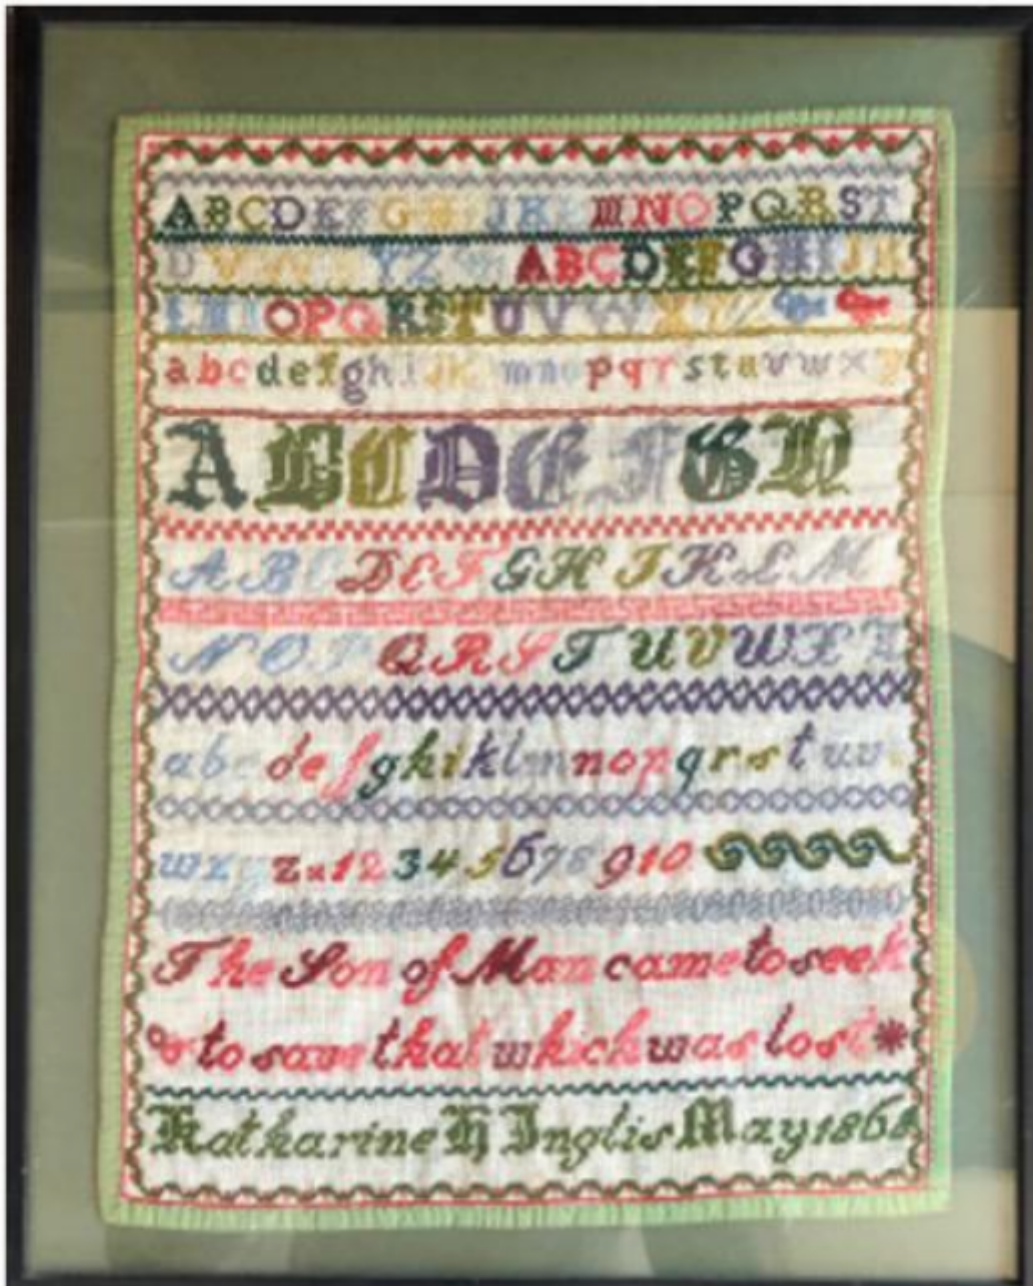 ABCDEFGHIJKLMNOPQRST
UVWXYZ ABCDEFGHIJK
LMNOPQRSTUVWXYZ
abcdefghijklmnopqrstuvwxy
ABCDEFGH
ABCDEFGHIKLM
NOPQRSTUVWX
abcdefghiklmnopqrstuv
wxyz 12345678910
The Son of Man came to seek
& to save that which was lost
Katharine H Inglis May